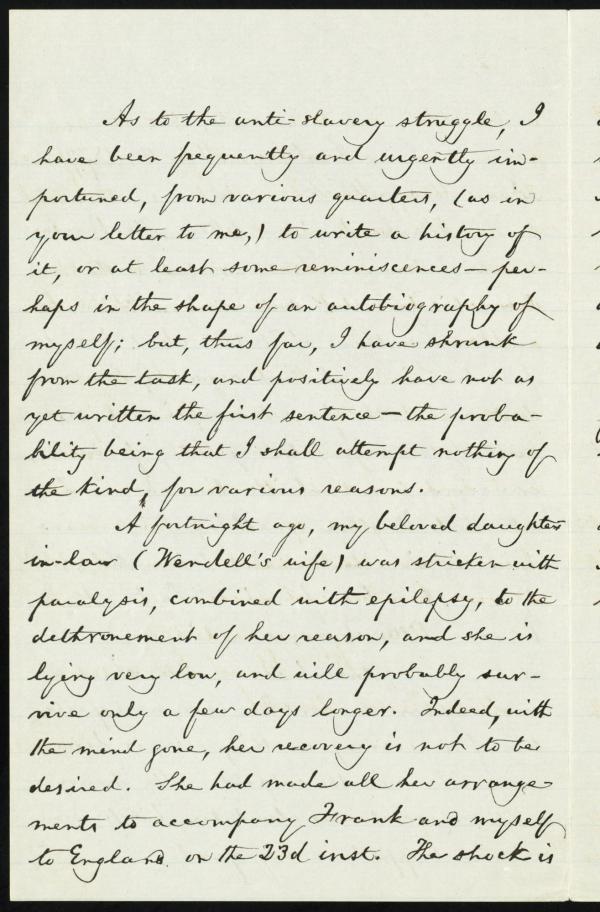 As to the anti-slavery struggle, I
have been frequently and urgently im-
portuned, from various quarters, (as in
your letter to me,) to write a history of
it, or at least some reminiscences — per-
haps in the shape of an autobiography of
myself; but, thus far, I have shrunk
from the task, and positively have not as
yet written the first sentence — the proba-
bility being that I shall attempt nothing of
the kind, for various reasons.
A fortnight ago, my beloved daughter
in-law (Wendell's wife) was stricken with
paralysis, combined with epilepsy, to the
dethronement of her reason, and she is
lying very low, and will probably sur-
vive only a few days longer. Indeed, with
the mind gone, her recovery is not to be
desired. She had made all her arrange-
ments to accompany Frank and myself
to England on the 23d inst. The shock is